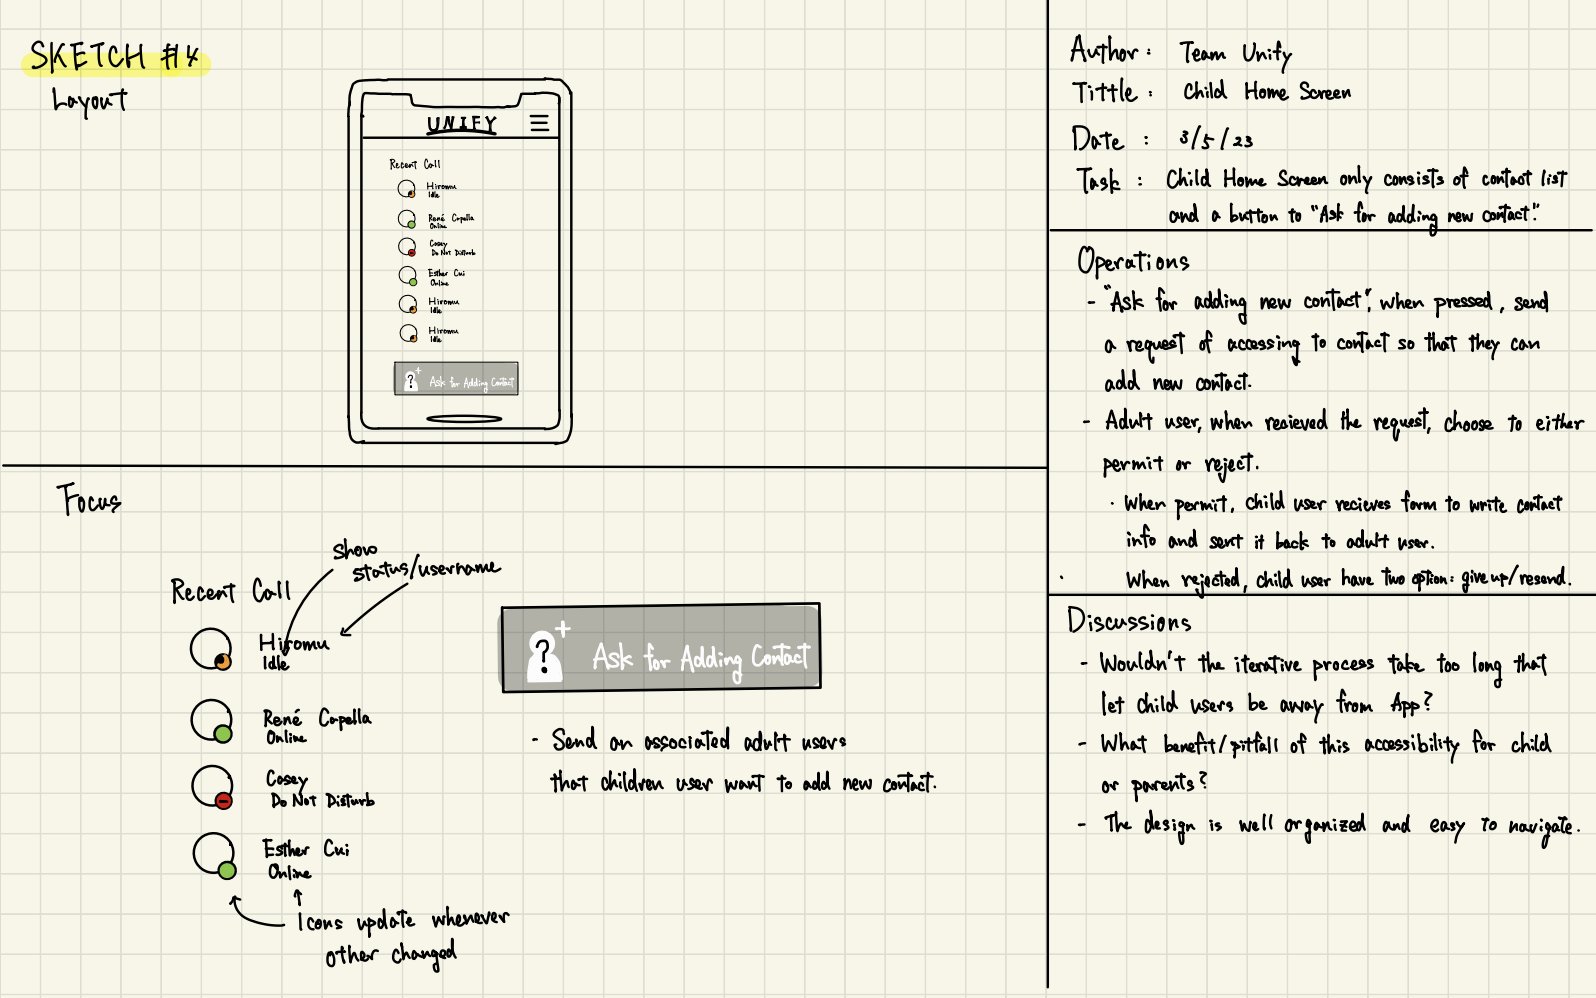 SKETCH #14
Layout
UNIFY
Recent Call
Hiromu
Idle
René Capella
Online
Casey
Do Not Disturb
Esther Cui
Online
Hiromu
Idle
Hiromu
Idle
? + Ask for Adding Contact
Focus
Show
status/username
Recent Call
Hiromu
Idle
René Capella
Online
Casey
Do Not Disturb
Esther Cui
Online
Icons update whenever
other changed
? + Ask for Adding Contact
- Send an associated adult users
that children user want to add new contact.
Author : Team Unify
Tittle : Child Home Screen
Date : 3/5/23
Task : Child Home Screen only consists of contact list
and a button to "Ask for adding new contact".
Operations
- "Ask for adding new contact", when pressed, send
a request of accessing to contact so that they can
add new contact.
- Adult user, when recieved the request, choose to either
permit or reject.
· When permit, child user recieves form to write contact
info and sent it back to adult user.
· When rejected, child user have two option: give up/resend.
Discussions
- Wouldn't the iterative process take too long that
let child users be away from App?
- What benefit/pitfall of this accessibility for child
or parents?
- The design is well organized and easy to navigate.